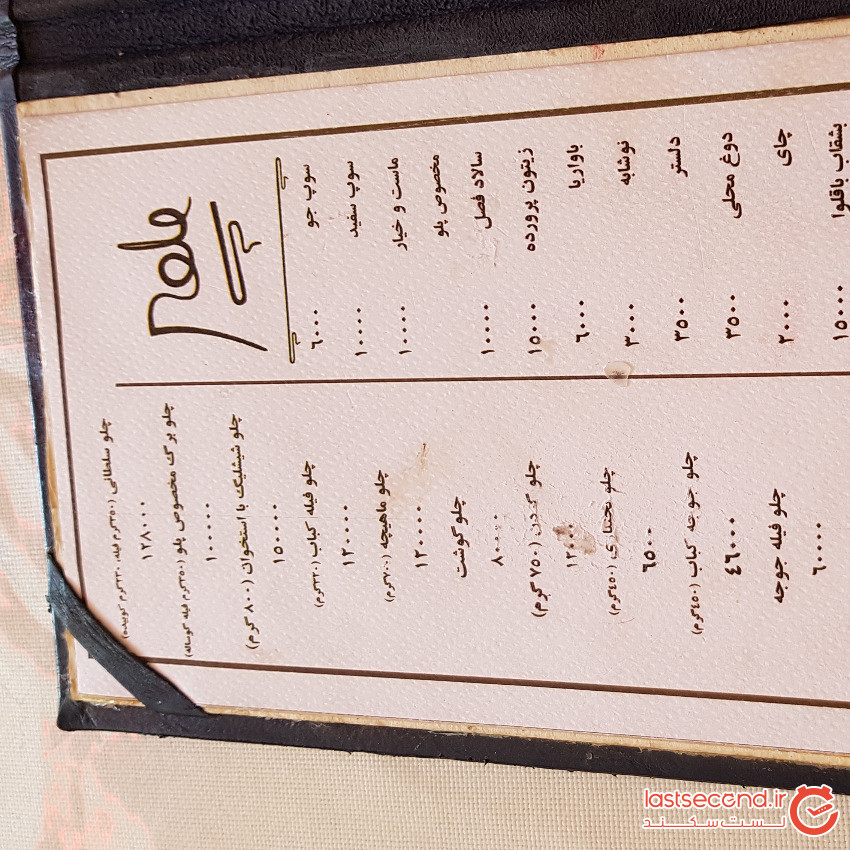 سوپ جو
۶۰۰۰
سوپ سفید
۱۰۰۰۰
ماست و خیار
۱۰۰۰۰
مخصوص پلو
سالاد فصل
۱۰۰۰۰
زیتون پرورده
۱۵۰۰۰
باواریا
۶۰۰۰
نوشابه
۳۰۰۰
دلستر
۳۵۰۰
دوغ محلی
۳۵۰۰
چای
۲۰۰۰
بشقاب باقلوا
۱۵۰۰۰
چلو سلطانی (۳۵۰گرم فیله، ۲۲۰گرم کوبیده)
۱۲۸۰۰۰
چلو برگ مخصوص پلو (۳۵۰گرم فیله گوساله)
۱۰۰۰۰۰
چلو شیشلیک با استخوان (۸۰۰ گرم)
۱۵۰۰۰۰
چلو فیله کباب (۲۲۰گرم)
۱۲۰۰۰۰
چلو ماهیچه (۷۰۰گرم)
۱۲۰۰۰۰
چلو گوشت
۸۰۰۰۰
چلو گردن (۷۵۰ گرم)
چلو بختیاری (۴۵۰گرم)
۶۵۰۰۰
چلو جوجه کباب (۴۵۰گرم)
۴۶۰۰۰
چلو فیله جوجه
۶۰۰۰۰
lastsecond.ir
لست سکند